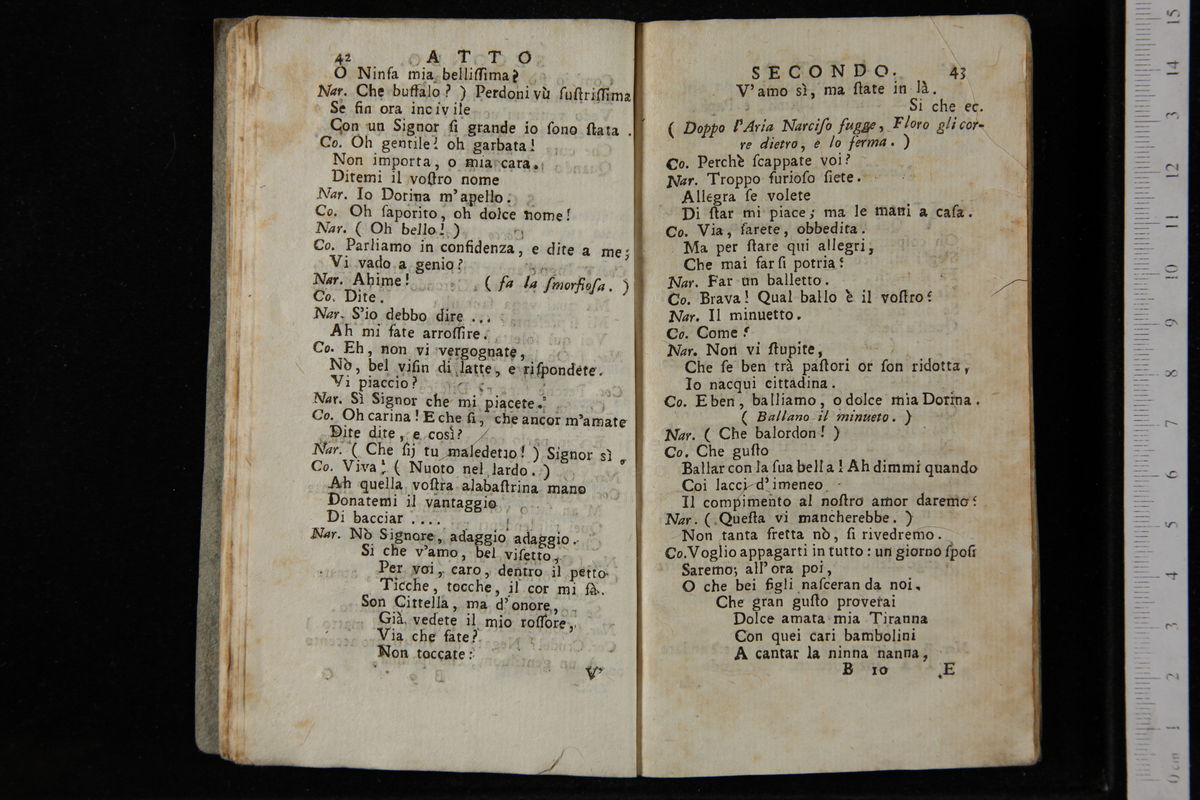 42 ATTO
O Ninfa mia belliſſima?
Nar. Che buffalo? ) Perdoni vù ſuſtriſſima
Se fin ora incivile
Con un Signor ſi grande io ſono ſtata .
Co. Oh gentile! oh garbata!
Non importa, o mia cara.
Ditemi il voſtro nome
Nar. Io Dorina m'apello.
Co. Oh ſaporito, oh dolce nome!
Nar. ( Oh bello! )
Co. Parliamo in confidenza, e dite a me;
Vi vado a genio?
Nar. Ahime! ( fa la ſmorfioſa. )
Co. Dite.
Nar. S'io debbo dire ...
Ah mi fate arroſſire.
Co. Eh, non vi vergognate,
Nò, bel viſin di latte, e riſpondete.
Vi piaccio?
Nar. Sì Signor che mi piacete.
Co. Oh carina! E che ſi, che ancor m'amate
Dite dite, e così?
Nar. ( Che ſij tu maledetto! ) Signor sì ,
Co. Viva! ( Nuoto nel lardo. )
Ah quella voſtra alabaſtrina mano
Donatemi il vantaggio
Di bacciar ....
Nar. Nò Signore, adaggio adaggio.
Si che v'amo, bel viſetto,
Per voi, caro, dentro il petto
Ticche, tocche, il cor mi fà.
Son Cittella, ma d'onore,
Già vedete il mio roſſore,
Via che fate?
Non toccate:
V'
SECONDO. 43
V'amo sì, ma ſtate in là.
Si che ec.
( Doppo l'Aria Narciſo fugge, Floro gli cor-
re dietro, e lo ferma. )
Co. Perchè ſcappate voi?
Nar. Troppo furioſo ſiete.
Allegra ſe volete
Di ſtar mi piace; ma le mani a caſa.
Co. Via, ſarete, obbedita.
Ma per ſtare qui allegri,
Che mai far ſi potria?
Nar. Far un balletto.
Co. Brava! Qual ballo è il voſtro?
Nar. Il minuetto.
Co. Come?
Nar. Non vi ſtupite,
Che ſe ben trà paſtori or ſon ridotta,
Io nacqui cittadina.
Co. E ben, balliamo, o dolce mia Dorina.
( Ballano il minueto. )
Nar. ( Che balordon! )
Co. Che guſto
Ballar con la ſua bella! Ah dimmi quando
Coi lacci d'imeneo
Il compimento al noſtro amor daremo?
Nar. ( Queſta vi mancherebbe. )
Non tanta fretta nò, ſi rivedremo.
Co. Voglio appagarti in tutto: un giorno ſpoſi
Saremo; all'ora poi,
O che bei figli naſceran da noi.
Che gran guſto proverai
Dolce amata mia Tiranna
Con quei cari bambolini
A cantar la ninna nanna,
B 10 E
15
14
13
12
11
10
9
8
7
6
5
4
3
2
1
0 cm